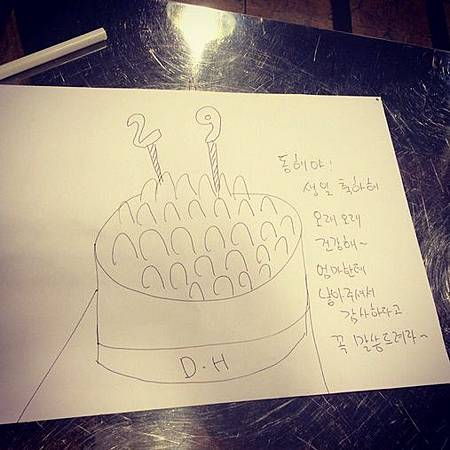 2 9
동해야!
생일 축하해
오래오래
건강해~
엄마한테
낳아주셔서
감사하다고
꼭 말씀드려라~
D.H